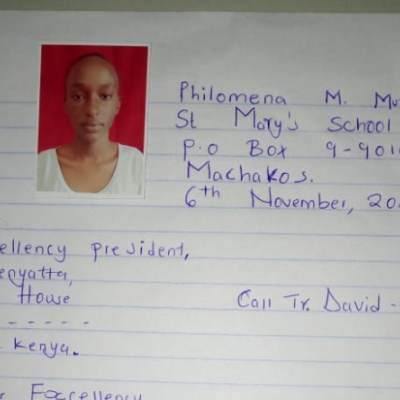 Philomena M.
St Mary's School
P.O Box 9-901
Machakos.
6th November, 20
ellency president,
enyatta,
House
Call Tr. David -
-----
Kenya.
Excellency